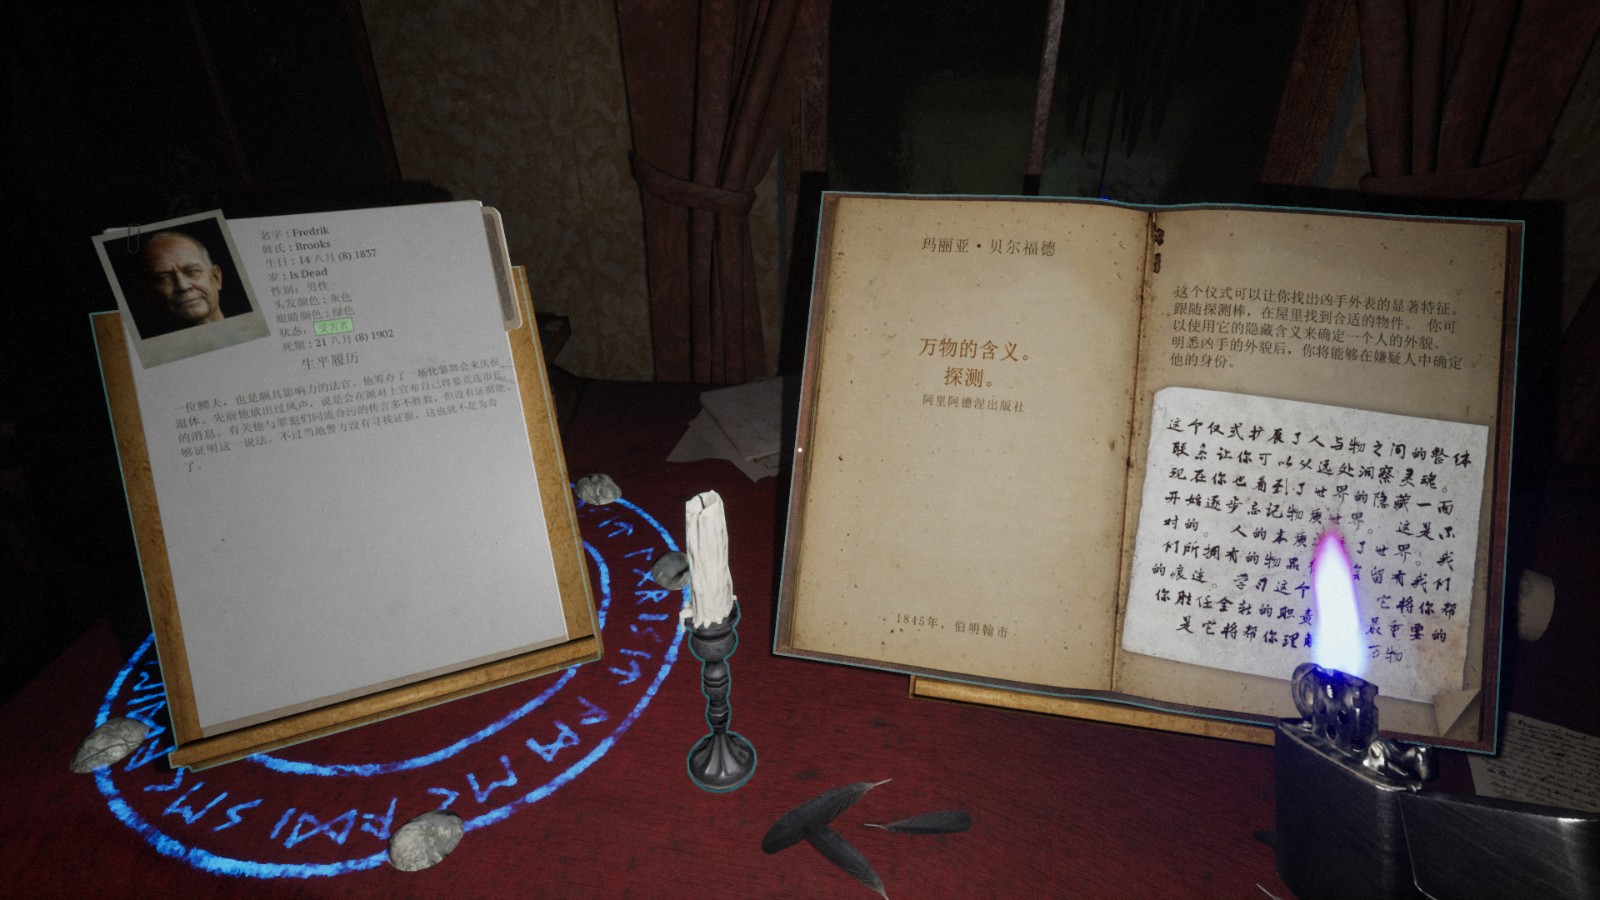 名字：Fredrik
姓氏：Brooks
生日：14 八月 (8) 1837
岁：Is Dead
性别：男性
头发颜色：灰色
眼睛颜色：绿色
状态：受害者
死期：21 八月 (8) 1902
生平履历
一位鳏夫，也是颇具影响力的法官。他筹办了一场化装舞会来庆祝
退休。先前他放出过风声，说是会在派对上宣布自己将要竞选市长
的消息。有关他与罪犯们同流合污的传言多不胜数，但没有证据能
够证明这一说法。不过当地警方没有寻找证据，这也就不足为奇
了。
玛丽亚·贝尔福德
万物的含义。
探测。
阿里阿德涅出版社
1845年，伯明翰市
这个仪式可以让你找出凶手外表的显著特征。
跟随探测棒，在屋里找到合适的物件。 你可
以使用它的隐藏含义来确定一个人的外貌。
明悉凶手的外貌后，你将能够在嫌疑人中确定
他的身份。
这个仪式扩展了人与物之间的整体
联系让你可以从远处洞察灵魂。
现在你也看到了世界的隐藏一面
开始逐步忘记物质世界。 这是不
对的。 人的本质 了世界！我
们所拥有的物品 留有我们
的痕迹。学习这个 它将你帮
你胜任全新的职责 最重要的
是它将帮你理解 万物